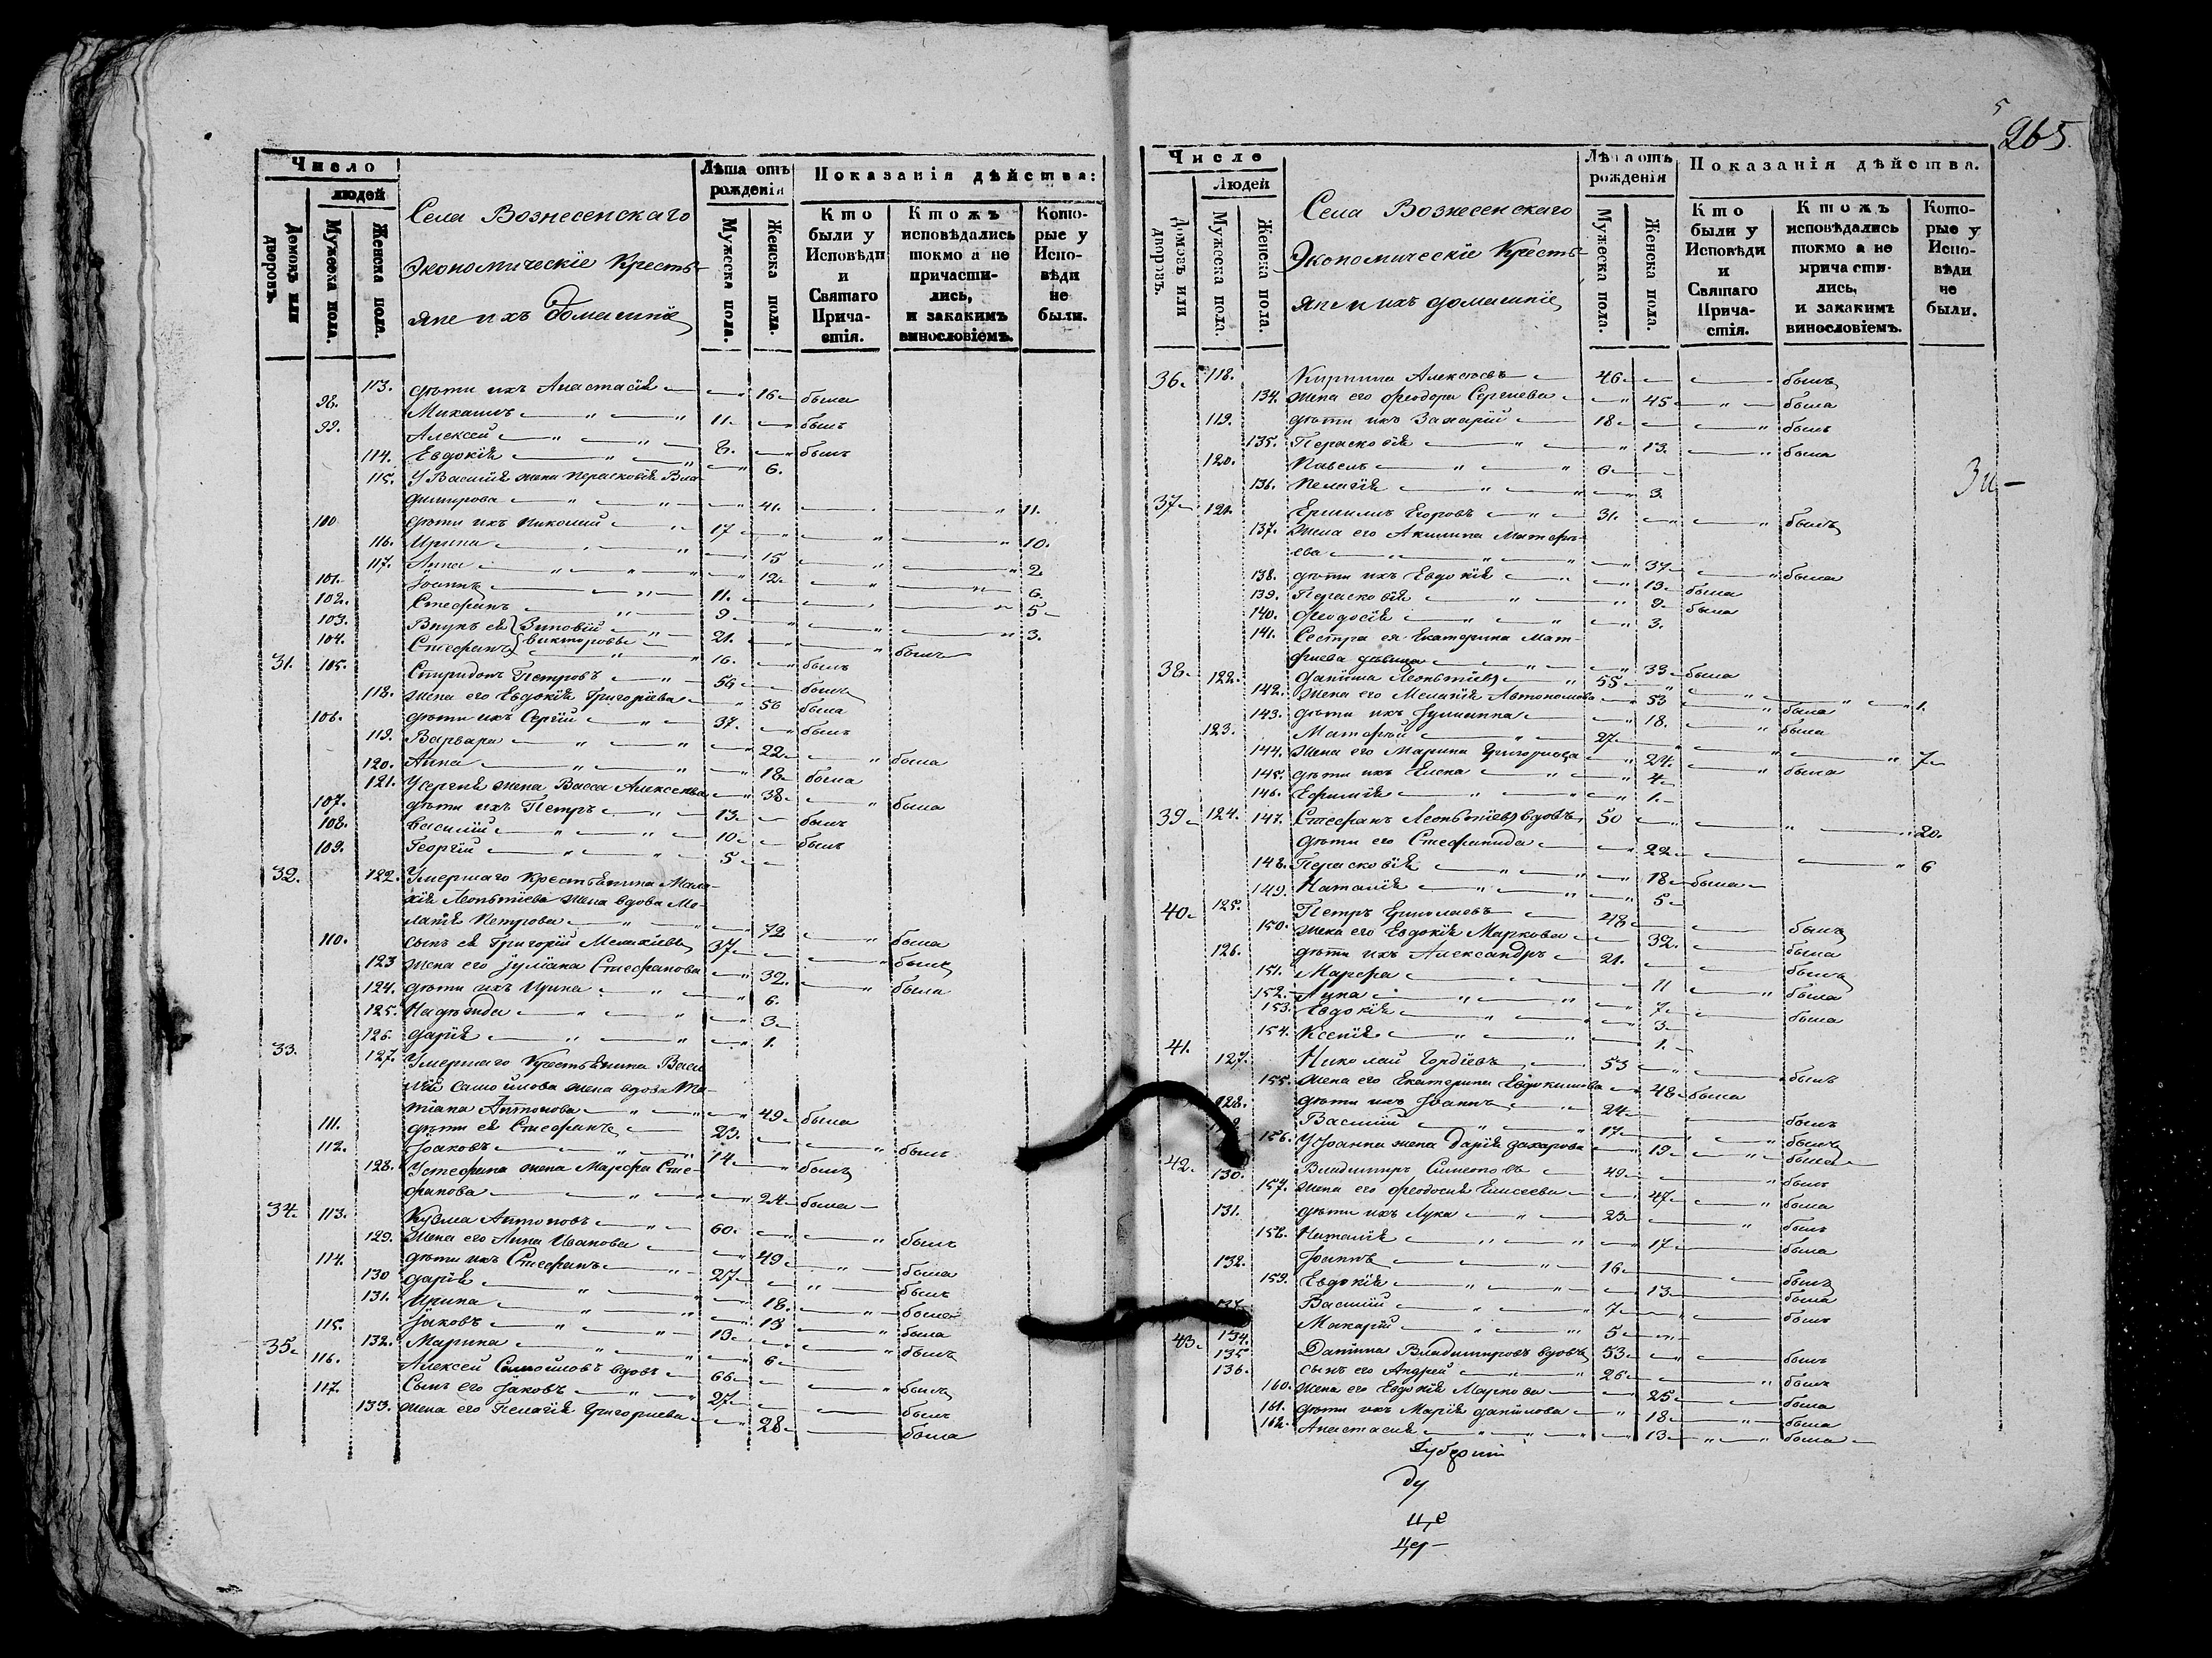 Число
людей
Лѣта отъ рожденія
Показанія дѣйства:
Домовъ или дворовъ.
Мужеска пола.
Женска пола.
Села Вознесенскаго
Экономическіе Кресть-
яне и ихъ домашніе
Мужеска пола.
Женска пола.
Кто были у Исповѣди и Святаго Прича-стія.
Ктожъ исповѣдались токмо а не причасти-лись, и закакимъ винословіемъ.
Кото-рые у Испо-вѣди не были.
113. дѣти ихъ Анастасія 16 была
98. Михаилъ 11 былъ
99. Алексей 8. былъ
114. Евдокія 6.
115. У Василія жена Перасковія Вла-
димирова 41. 11.
100 дѣти ихъ Николай 17 10.
116. Ирина 15 2
117. Анна 12. 6.
101. Іоаннъ 11. 5
102. Стефанъ 9 3.
103. Внукъ ея Зиновій 21. былъ
104. Стефанъ Викторовы 16. былъ
31. 105. Спиридонъ Петровъ 56 былъ
118. жена его Евдокія Григоріева 56 была
106. дѣти ихъ Сергій 37. былъ
119. Варвара 22 была
120. Анна 18 была
121. У Сергія жена Васса Алексеева 38 была
107. дѣти ихъ Петръ 13 былъ
108. Василій 10 былъ
109. Георгій 5
32. 122. Умершаго Крестьянина Мала-
хія Леонтіева жена вдова Ме-
ланія Петрова 72 была
110. сынъ ея Григорій Мелахіевъ 37 былъ
123 жена его Іуліана Стефанова 32. была
124. дѣти ихъ Ирина 6.
125. Надѣжда 3
126. Дарія 1.
33. 127. Умершаго Крестьянина Васи
лія Самойлова жена вдова Та-
тіана Антонова 49 была
111. дѣти ея Стефанъ 23. былъ
112. Іаковъ 14 былъ
128. У Стефана жена Марфа Сте-
фанова 24 была
34. 113. Кузма Антоновъ 60. былъ
129. жена его Анна Иванова 49 была
114. дѣти ихъ Стефанъ 27 былъ
130 Дарія 18. была
131. Ирина 15 была
115. Іаковъ 13 былъ
132. Марина 6
35. 116. Алексей Самойловъ вдовъ 66 былъ
117. Сынъ его Іаковъ 27 былъ
133. жена его Пелагія Григориева 28 была
5
265.
Число
Людей
Лѣта отъ рожденія
Показанія дѣйства.
Домовъ или дворовъ.
Мужеска пола.
Женска пола.
Села Вознесенскаго
Экономическіе Кресть-
яне и ихъ домашніе
Мужеска пола.
Женска пола.
Кто были у Исповѣди и Святаго Прича-стія.
Ктожъ исповѣдались токмо а не прича сти-лись, и закакимъ винословіемъ.
Кото-рые у Испо-вѣди не были.
36. 118. Кирилла Алексѣевъ 46 былъ
134. жена его Феодора Сергиева 45 была
119. дѣти ихъ Захарій 18 былъ
135. Перасковія 13. была
120. Павелъ 6
136. Пелагія 3.
37 121. Ермилъ Егоровъ 31. былъ
137. Жена его Акилина Матфи-
ева 34 была
138. дѣти ихъ Евдокія 13 была
139. Перасковія 9 была
140. Феодосія 3.
141. Сестра ея Екатерина Мат-
фиева дѣвица 33 была
38. 122. Даніила Леонтіевъ 55 1.
142. Жена его Меланія Автономова 53 была
143. дѣти ихъ Іулианна 18. была
123. Матофей 27 7
144. Жена его Марина Григориева 24. была
145. дѣти ихъ Елена 4
146. Ефимія 1.
39 124. Стефанъ Леонтіевъ вдовъ 50 20.
147. дѣти его Стефанида 22 6
148. Перасковія 18 была
149. Наталія 5
40. 125. Петръ Ермолаевъ 48 былъ
150. жена его Евдокія Маркова 32. была
126. дѣти ихъ Александръ 21. былъ
151. Марфа 11 была
152. Анна 7 была
153. Евдокія 3
154. Ксенія 1.
41. 127. Николай Гордіевъ 53 былъ
155. жена его Екатерина Евдокимова 48 была
128. дѣти ихъ Іоаннъ 24 былъ
Василій 17 былъ
156. У Іоанна жена Дарія Захарова 19 была
42. 130. Владимиръ Симеоновъ 49 былъ
157. жена его Феодосия Елисеева 47 была
131. дѣти ихъ Лука 23 былъ
158. Наталія 17 была
132. Іоаннъ 16 былъ
159. Евдокія 13 была
Василій 7 былъ
134. Макарій 5
43. 135 Даніила Владимировъ вдовъ 53 былъ
136. сынъ его Андрей 26 былъ
160. жена его Евдокія Маркова 25 была
161. дѣти ихъ Марія Данилова 18 была
162. Анастасія 13 была
Губерніи
ду